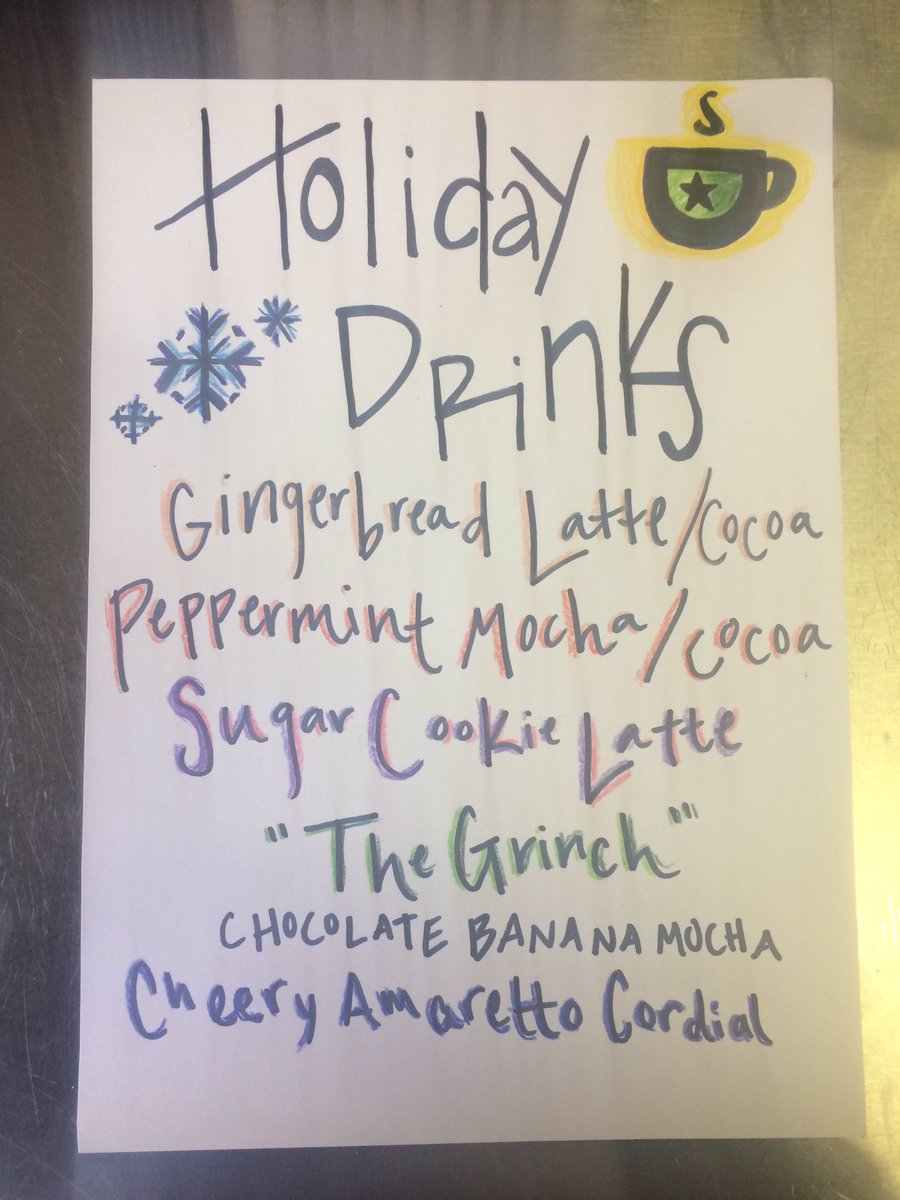 S
Holiday
Drinks
Gingerbread Latte/cocoa
Peppermint Mocha/cocoa
Sugar Cookie Latte
"The Grinch"
CHOCOLATE BANANA MOCHA
Cheery Amaretto Cordial